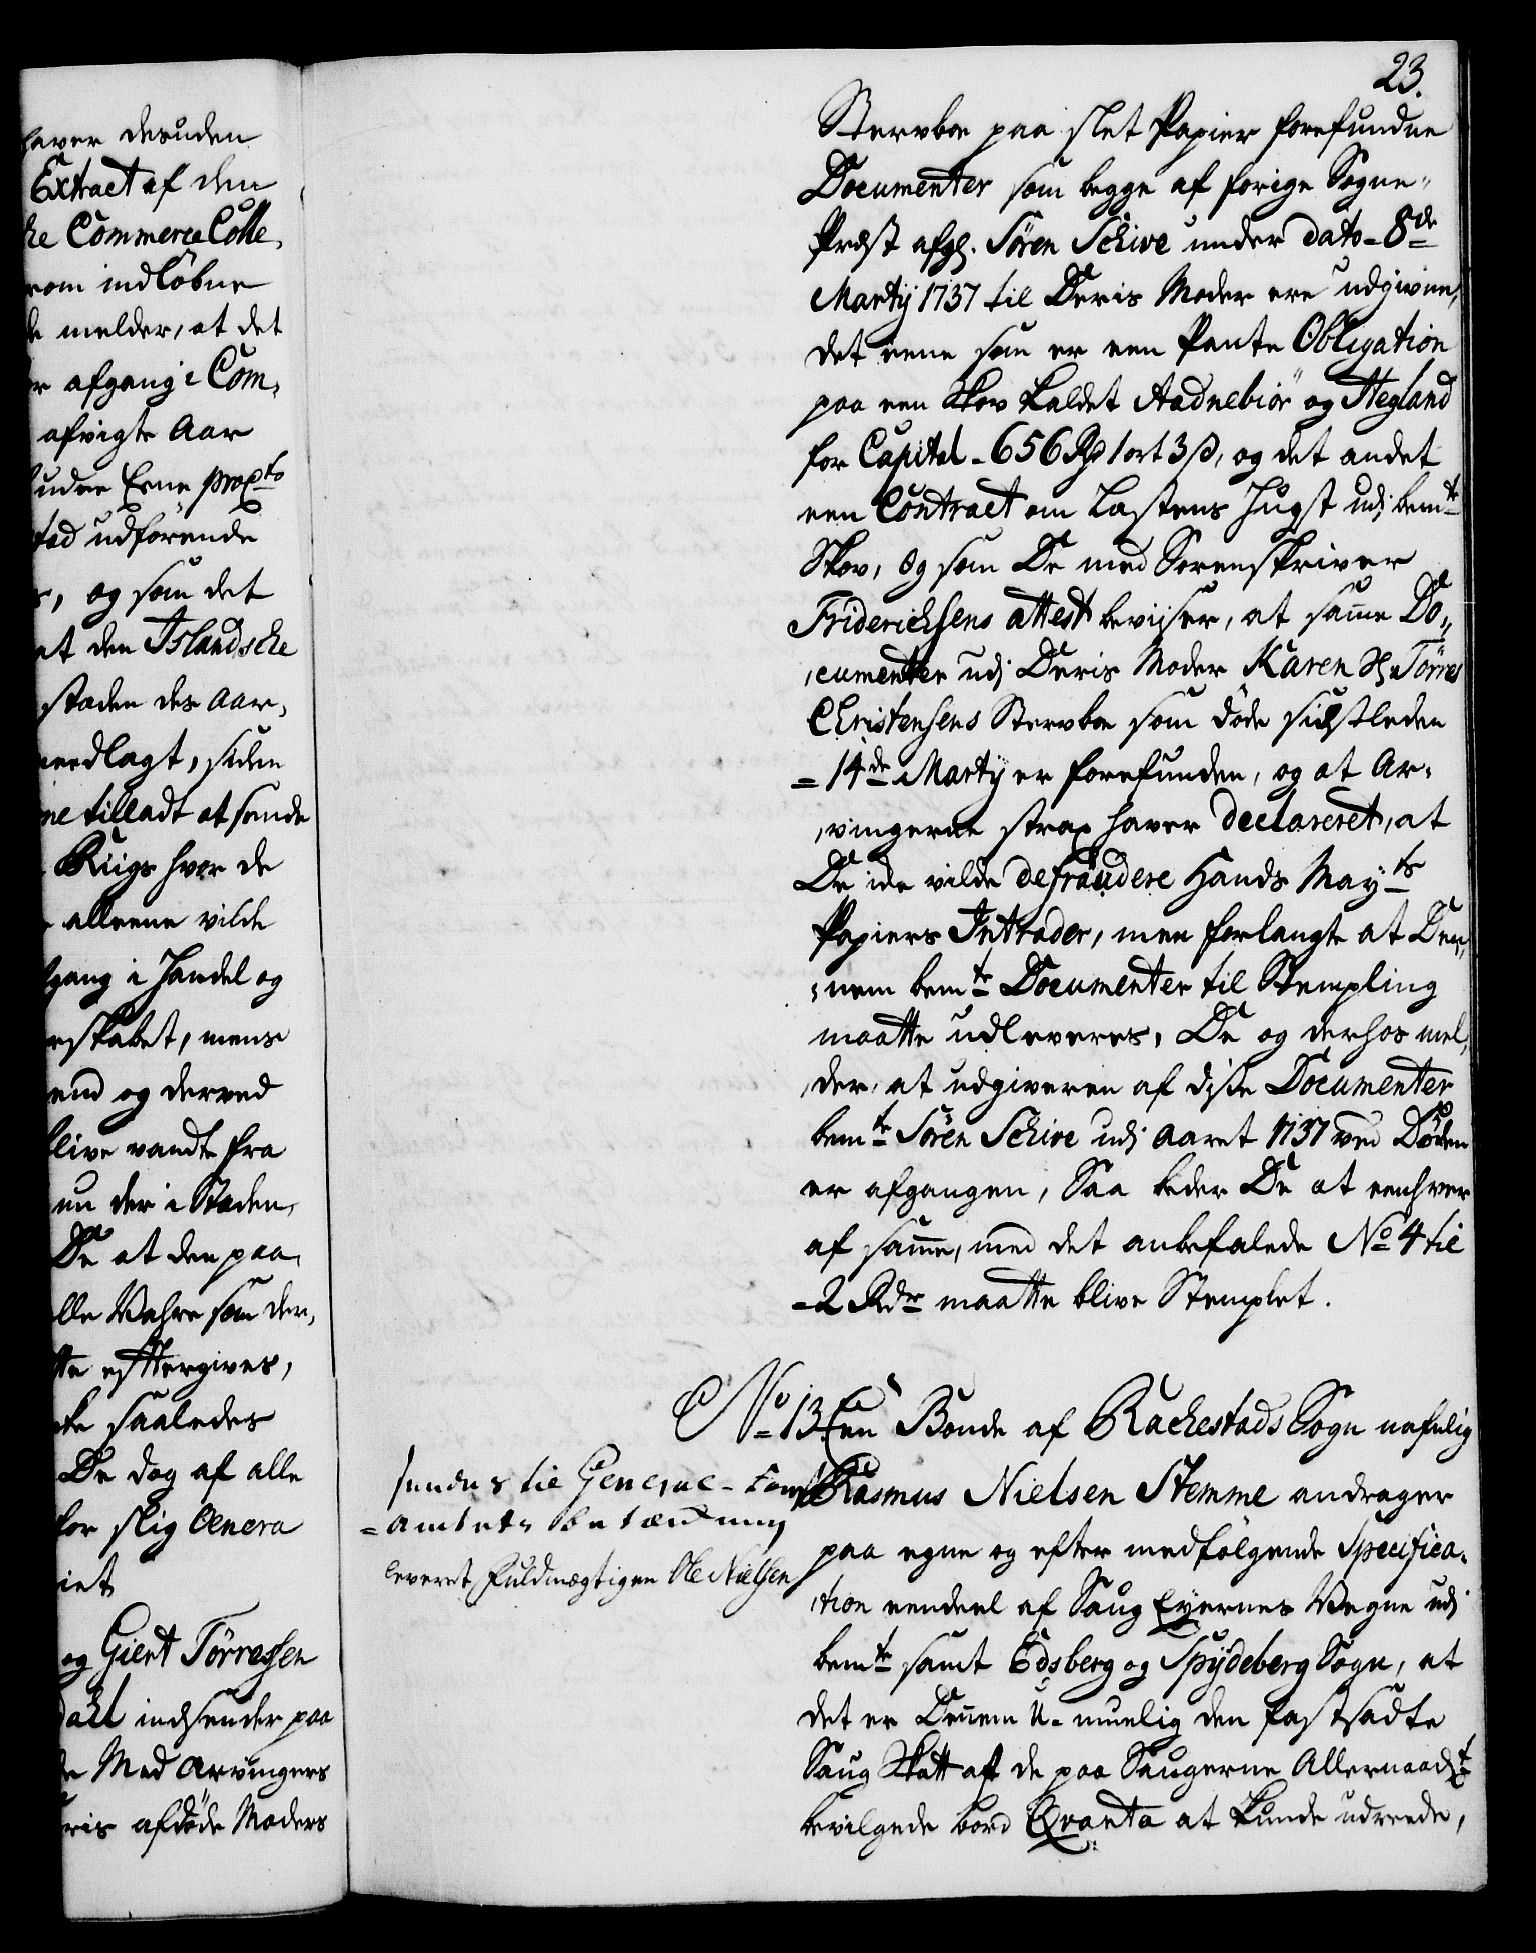 haver desuden
Extract af den
he Commerce Colle,
som indløbne
melder, at det
afgang i Com,
afvigte Aar
udre Erne prox:to
stad udførende
, og som det
at den Islandsche
staden des Aar,
needlagt, siden
ne tilladt at sende
Riigs hvor de
alleene vilde
gang i Handel og
rskabet, mens
end og derved
blive vandte fra
un der i Staden,
De at den paa,
lle Vahre som der,
tte efftergives,
te saaledes
De dog af alle
for slig Onera
iet
og Giert Tørressen
dahl indsender paa
de Med Arvingers
ris afdøde Moders
23.
Stervboe paa slet Papier forefundne
Documenter som begge af forige Sogne-
Præst afg: Søren Schive under dato = 8de
Martij 1737 til Deris Moder ere udgivne,
det eene som er een Pante Obligation
paa een Skov kaldet Aadnebiör og Hegland
for Capital = 656 Rd 1 ort 3 ß, og det andet
een Contract om Lastens Hugst udj bemte
Skov, og som De med Sorenskriver
Friderichsens attest beviiser, at samme Do,,
,cumenter udj Deris Moder Karen Sl: Tørres
Christensens Stervboe som døde sidstleden
= 14de Martij er forefunden, og at Ar,
,vingerne strax haver declareret, at
De icke vilde defraudere Hands Mayts
Papiers Intrader, men forlangte at Den,
,nem bemte Documenter til Stempling
maatte udleveres, De og derhos mel,
,der, at udgiveren af disse Documenter
bemte Søren Schive udj Aaret 1737 ved Døden
er afgangen, Saa beder De at eenhver
af samme, med det anbefalede No 4 til
= 2 Rdr maatte blive Stemplet.
No = 13. En Bonde af Rachestads Sogn nafnlig
Rasmus Nielsen Stemme andrager
paa egne og efter medfølgende Specifica,
,tion eendeel af Saug Eyernes Vegne udj
bemte samt Edsberg og Spydeberg Sogn, at
det er Dennem U-muelig den fastsadte
Saug Skatt aft de paa Saugerne Allernaadt
bevilgede bord Qvanta at kunde udreede,
sendes til General-Tom
=amtets betænkning
leveret Fuldmægtigen Ole Nielsen